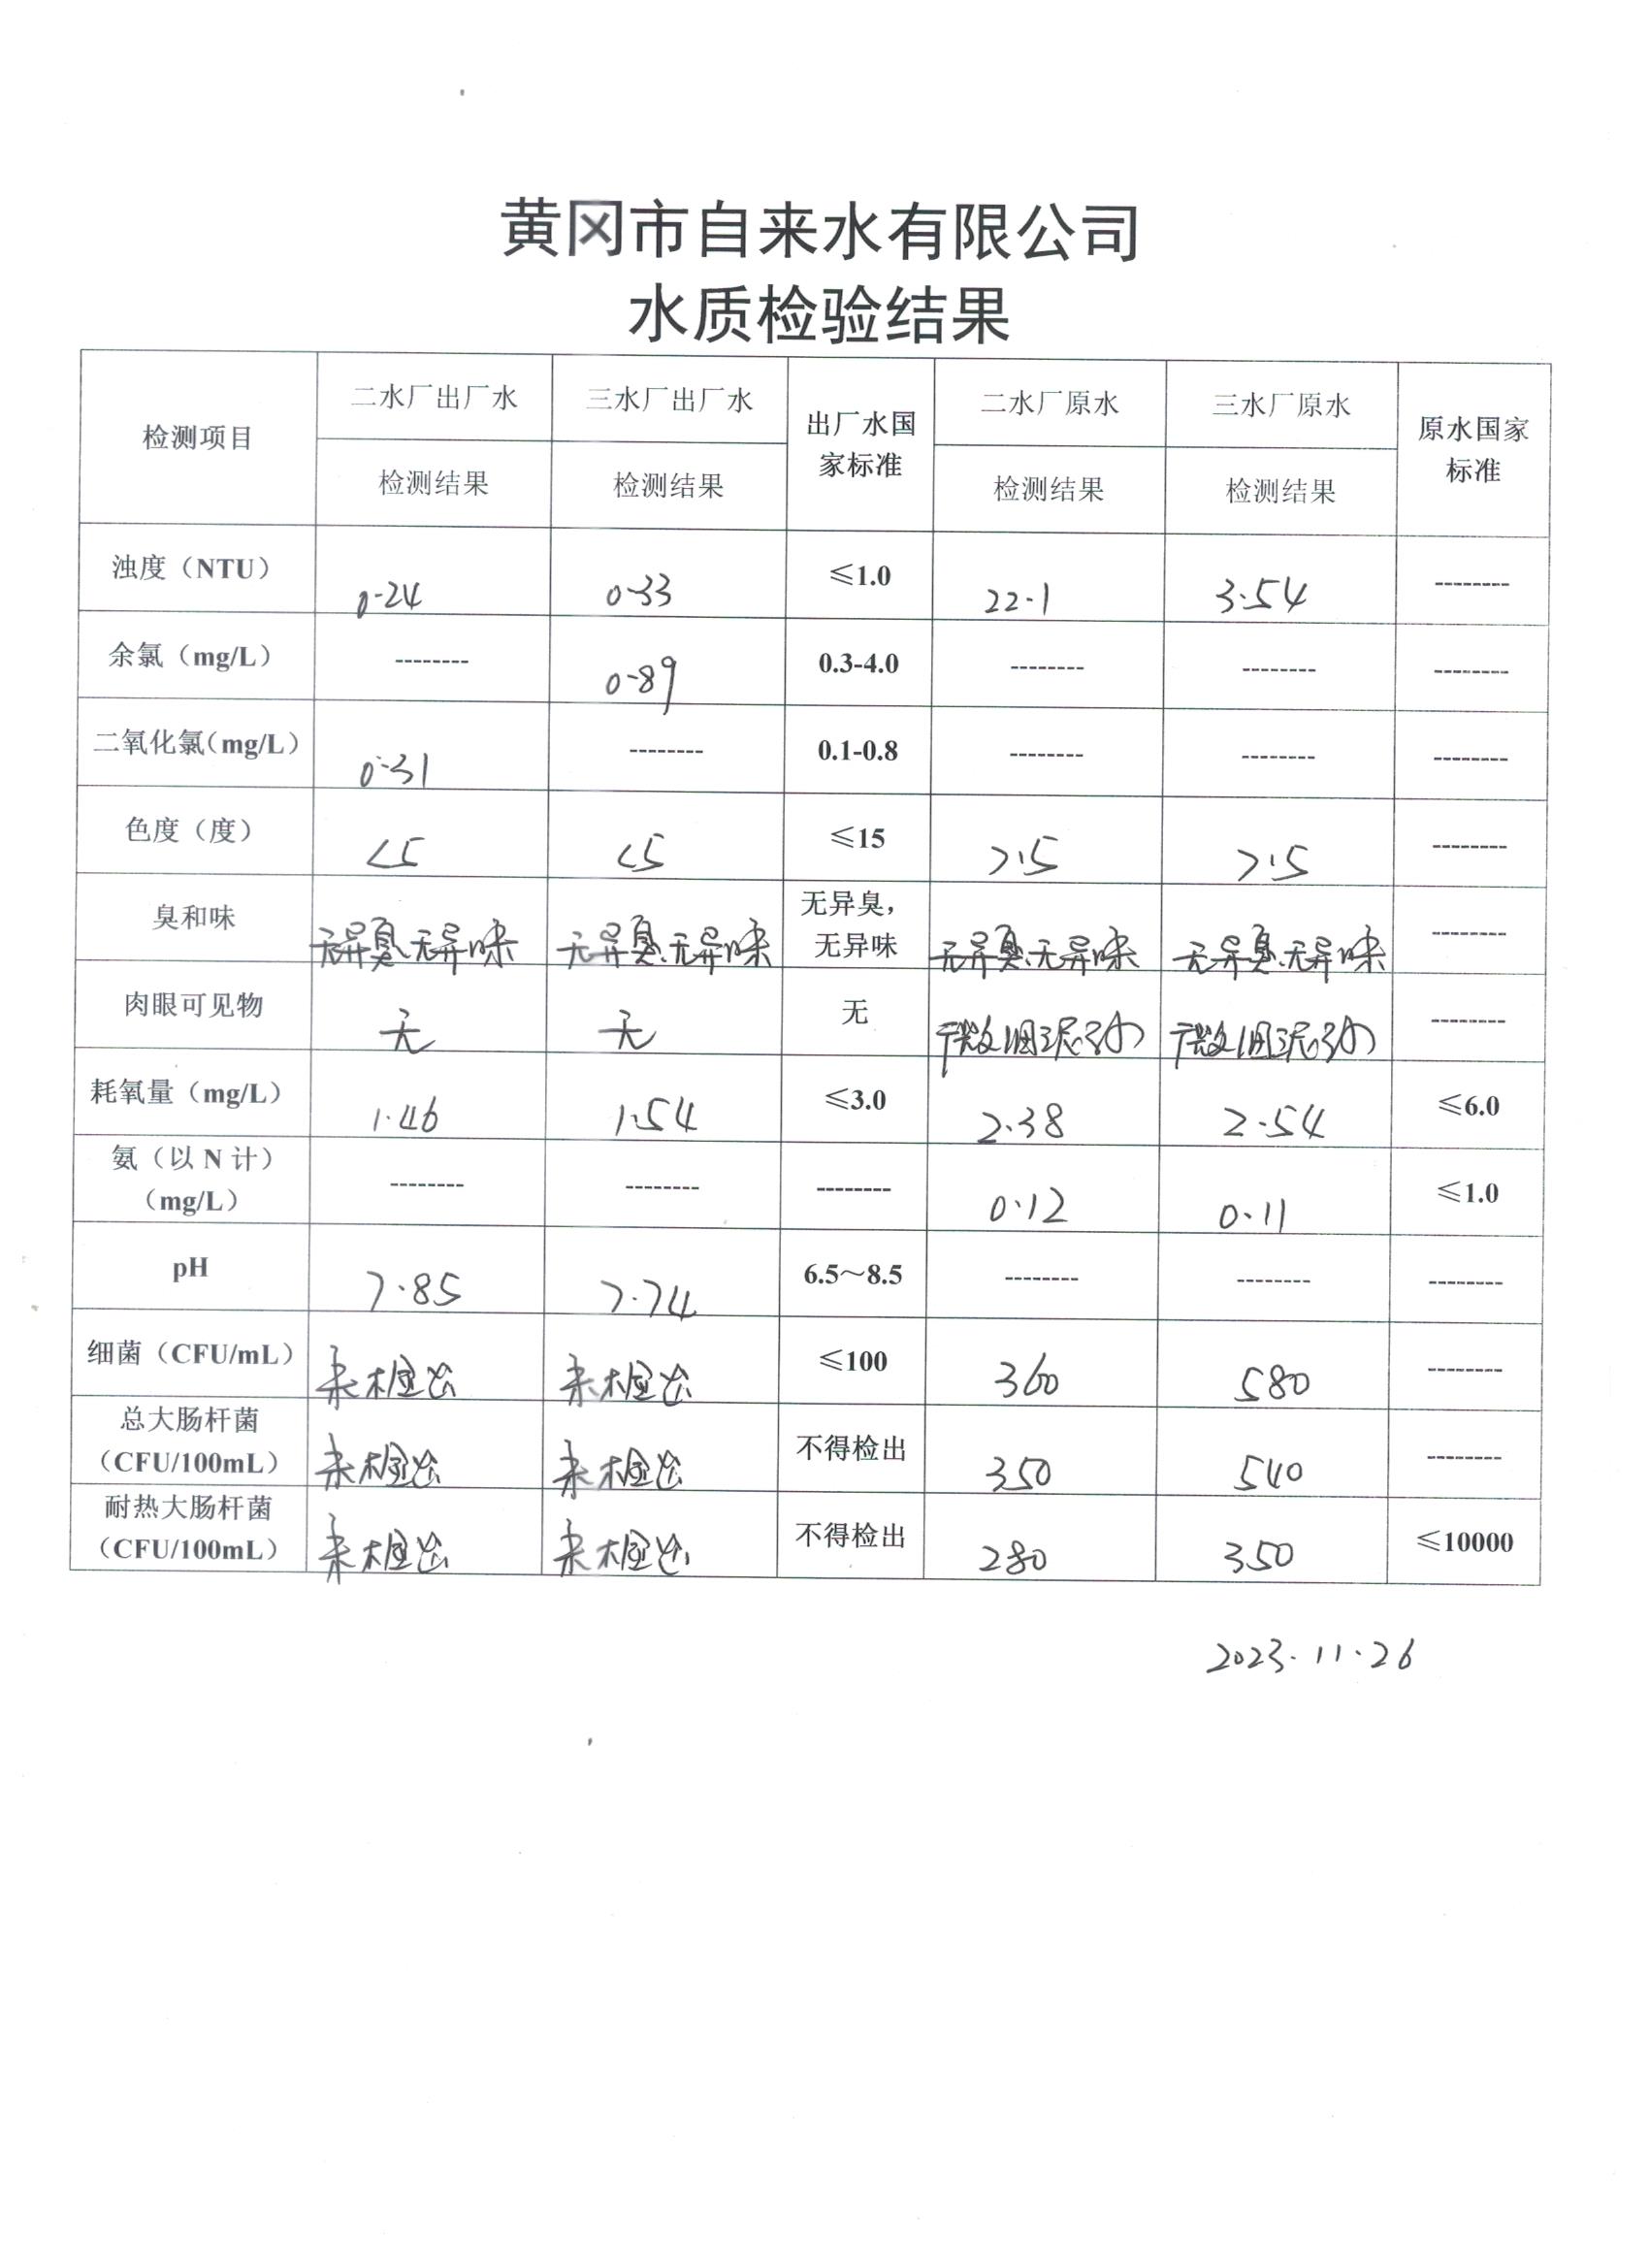 黄冈市自来水有限公司
水质检验结果
检测项目 二水厂出厂水 三水厂出厂水 出厂水国家标准 二水厂原水 三水厂原水 原水国家标准
检测结果 检测结果 检测结果 检测结果
浊度（NTU） 0.24 0.33 ≤1.0 22.1 3.54 --------
余氯（mg/L） -------- 0.89 0.3-4.0 -------- -------- --------
二氧化氯（mg/L） 0.31 -------- 0.1-0.8 -------- -------- --------
色度（度） <5 <5 ≤15 >15 >15 --------
臭和味 无异臭、无异味 无异臭、无异味 无异臭，无异味 无异臭、无异味 无异臭、无异味 --------
肉眼可见物 无 无 无 微细泥沙 微细泥沙 --------
耗氧量（mg/L） 1.46 1.54 ≤3.0 2.38 2.54 ≤6.0
氨（以 N 计）（mg/L） -------- -------- -------- 0.12 0.11 ≤1.0
pH 7.85 7.74 6.5～8.5 -------- -------- --------
细菌（CFU/mL） 未检出 未检出 ≤100 360 580 --------
总大肠杆菌（CFU/100mL） 未检出 未检出 不得检出 350 540 --------
耐热大肠杆菌（CFU/100mL） 未检出 未检出 不得检出 280 350 ≤10000
2023.11.26